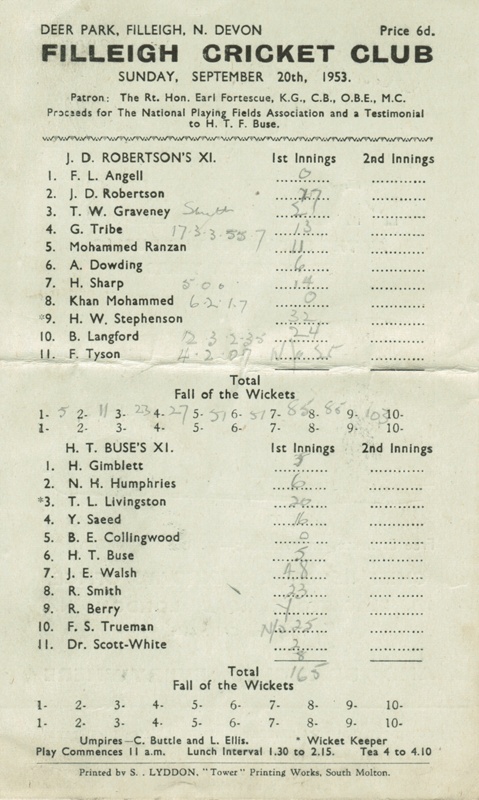 DEER PARK, FILLEIGH, N. DEVON Price 6d.
FILLEIGH CRICKET CLUB
SUNDAY, SEPTEMBER 20th, 1953.
Patron: The Rt. Hon. Earl Fortescue, K.G., C.B., O.B.E., M.C.
Proceeds for The National Playing Fields Association and a Testimonial
to H. T. F. Buse.
J. D. ROBERTSON'S XI. 1st Innings 2nd Innings
1. F. L. Angell 0
2. J. D. Robertson
3. T. W. Graveney 51
4. G. Tribe 17.3.3.55 7 13
5. Mohammed Ranzan 11
6. A. Dowding 6
7. H. Sharp 5 0 0 14
8. Khan Mohammed 6.2.1.7 0
*9. H. W. Stephenson 32
10. B. Langford 12 3.2.35 24
11. F. Tyson 4.2.07
Total
Fall of the Wickets
1- 5 2- 11 3- 23 4- 27 5- 51 6- 51 7- 85 8- 85 9- 103 10-
1- 2- 3- 4- 5- 6- 7- 8- 9- 10-
H. T. BUSE'S XI. 1st Innings 2nd Innings
1. H. Gimblett
2. N. H. Humphries 6
*3. T. L. Livingston 20
4. Y. Saeed 16
5. B. E. Collingwood 0
6. H. T. Buse 5
7. J. E. Walsh 48
8. R. Smith 33
9. R. Berry
10. F. S. Trueman N/o 25
11. Dr. Scott-White 2
8
Total 165
Fall of the Wickets
1- 2- 3- 4- 5- 6- 7- 8- 9- 10-
1- 2- 3- 4- 5- 6- 7- 8- 9- 10-
Umpires—C. Buttle and L. Ellis. * Wicket Keeper
Play Commences 11 a.m. Lunch Interval 1.30 to 2.15. Tea 4 to 4.10
Printed by S. . LYDDON, "Tower" Printing Works, South Molton.